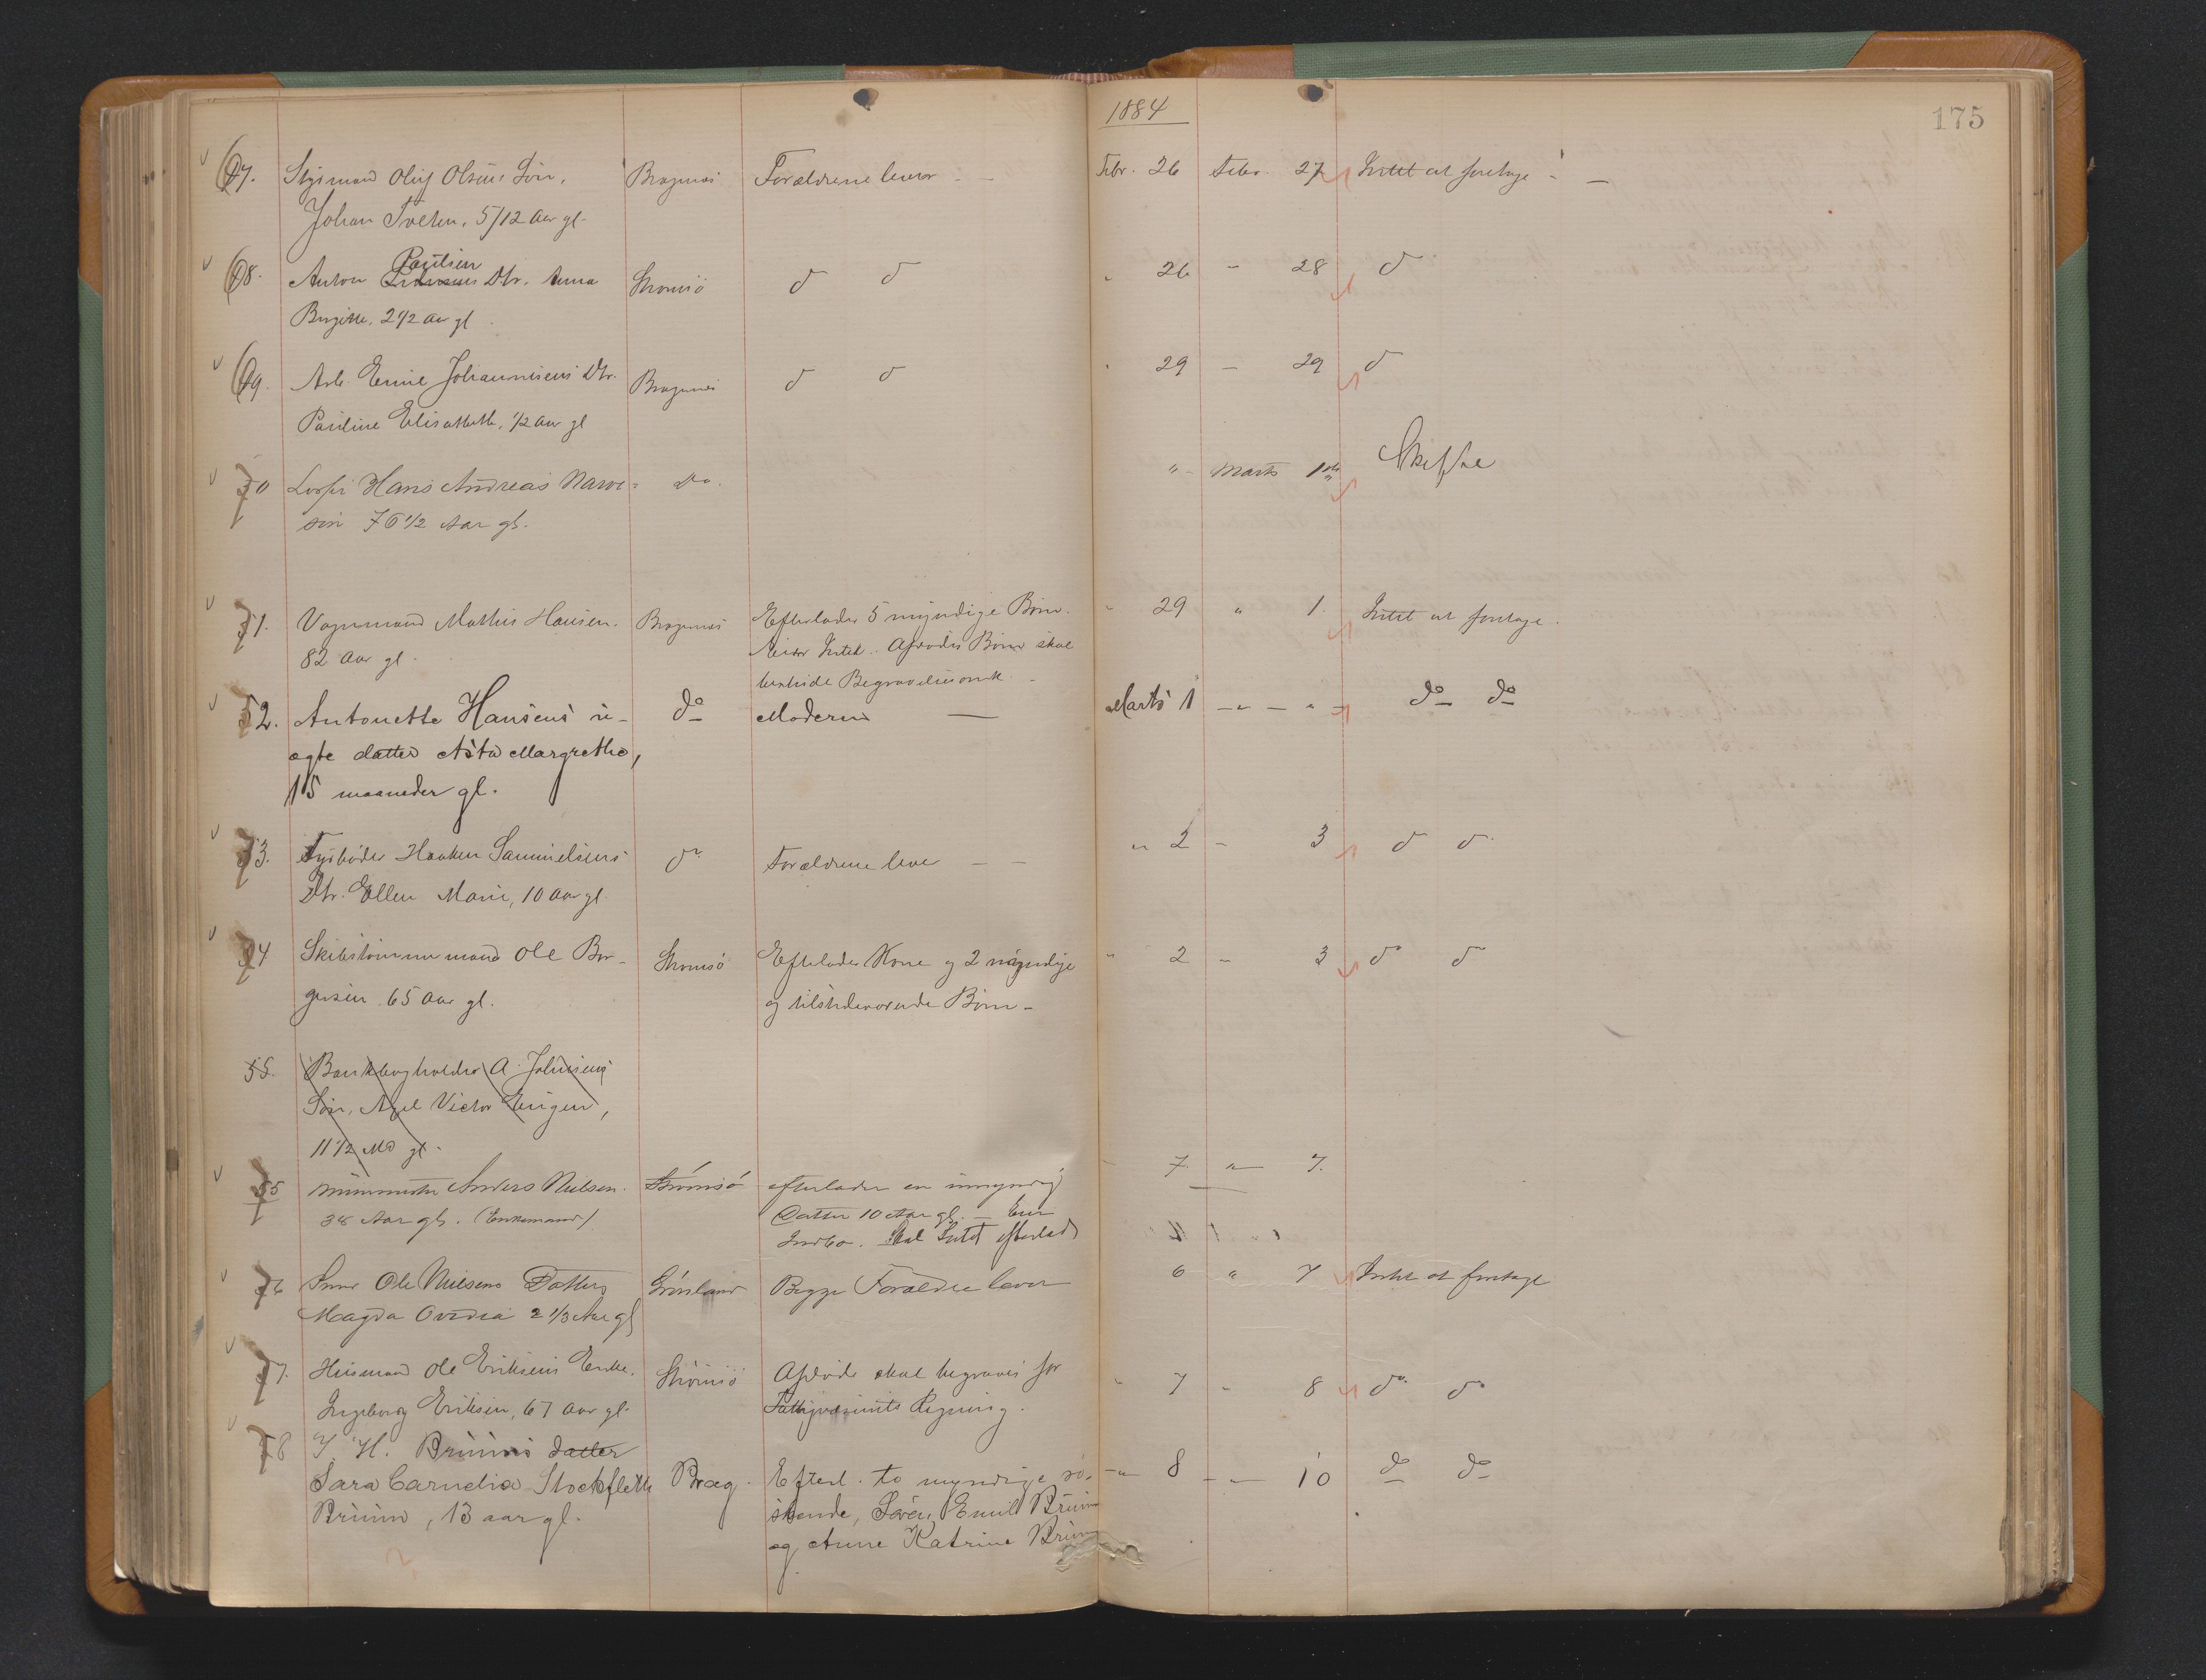 1884
175
47. Oluf Olsens Søn, Bragernes Forældrene lever — Febr. 26 Febr. 27 Intet at foretage —
Johan Tveten, 5/12 Aar gl.
Paulsen
48. Anton Dtr. Anna Strømsö d d " 26 - 28 d
Birgitte, 2 1/2 Aar gl.
49. Arb. Emil Johannesens Dtr. Bragernes d d " 29 - 29 d
Pauline Elisabeth, 1/2 Aar gl
50 Hans Andreas Narve= Do. " Marts 1ste Skifte
sen 76 1/2 Aar gl.
51. Vognmand Mathis Hansen. Bragernes Efterlader 5 myndige Børn. " 29 " 1. Intet at foretage.
82 Aar gl. Eier Intet. Afdødes Børn skal
bekoste Begravelsen
52. Antonette Hansens u- do Moderen — Marts 1 - " - " - do do
ægte datter Asta Margrethe,
15 maaneder gl.
53. Haaken Samuelsens do Forældrene lever — — " 2 - 3 d d
Dtr. Ellen Marie, 10 Aar gl.
54 Skibstømmermand Ole Bor- Strømsö Efterlader Kone og 2 myndige " 2 - 3 do d
gersen. 65 Aar gl. og tilstedeværende Børn -
55. Bankbogholder A. Johnsens
Søn, Axel Victor Eugen,
11 1/2 Md gl.
55 Anders Nielsen. Strømsö efterlader en umyndig - 7. " 7.
38 Aar gl. (Enkemand) Datter 10 Aar gl. —
Indbo. Skal Intet efterlade
56 Ole Nielsens Datter Grønland Begge Forældre lever 6 " 7 Intet at foretage
Magda Ovidia 2 1/3 Aar gl
57. Huusmand Ole Eriksens Enke. Strømsö Afdøde skal begraves for " 7 - 8 do do
Ingeborg Eriksen, 67 Aar gl. Fattigvæsenets Regning.
58 J. H. Bruuns datter
Sara Carnelia Stockfleth Brag. Efterl. to myndige sø- -"- 8 -"- 10 do do
Bruun, 13 aar gl. skende, Søren Emil Bruun
og Anne Katrine Bruun